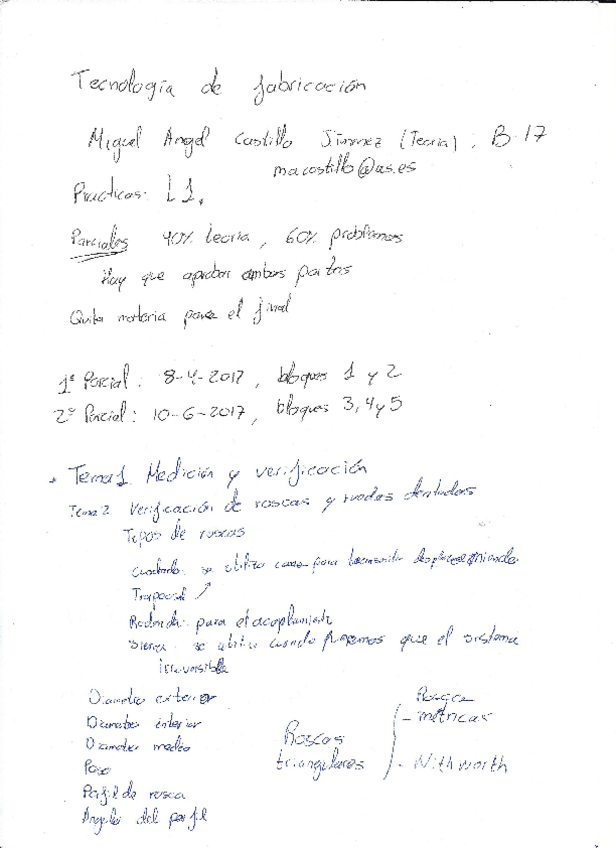 Tecnología de fabricación
Miguel Angel Castillo Jimenez (Teoria). B-17
macastillo@as.es
Practicas: L1.
Parciales 40% teoria, 60% problemas
Hay que aprobar ambas partes
Quita materia para el final
1º Parcial: 8-4-2017, bloques 1 y 2
2º Parcial: 10-6-2017, bloques 3, 4 y 5
Tema 1. Medición y verificación
Tema 2 Verificación de roscas y ruedas dentadas
Tipos de roscas
se utiliza para transmitir
Redonda: para el acoplamiento
Sierra: se utiliza cuando queremos que el sistema
irreversible
Diametro exterior
Diametro interior
Diametro medio
Paso
Perfil de rosca
Angulo del perfil
Roscas
triangulares
Rosca
- metricas
- Withworth